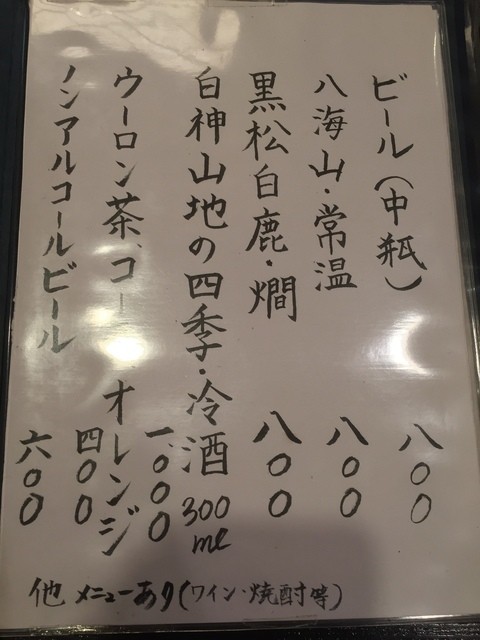 ビール(中瓶) 八〇〇
八海山・常温 八〇〇
黒松白鹿・燗 八〇〇
白神山地の四季・冷酒 300ml 一、〇〇〇
ウーロン茶、コー オレンジ 四〇〇
ノンアルコールビール 六〇〇
他 メニューあり(ワイン・焼酎等)